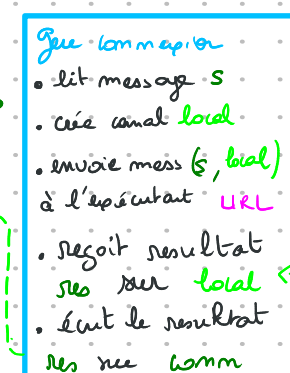 Gere connexion
• lit message s
• crée canal local
• envoie mess (s, local)
à l'exécutant URL
• reçoit resultat
res sur local
• écrit le resultat
res sur conn